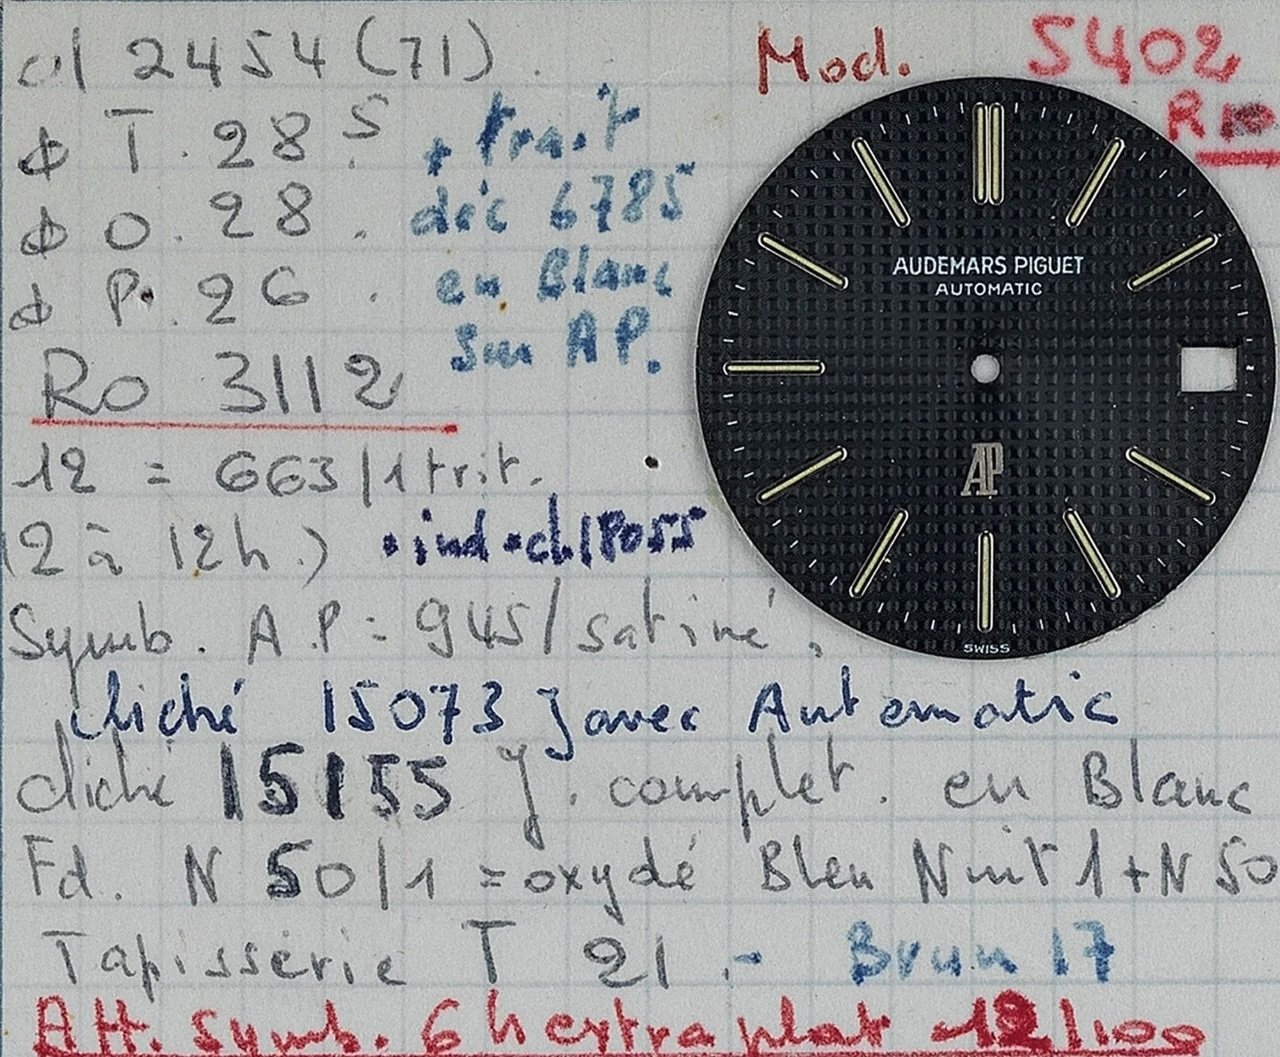 cl 2454 (71).
Mod. 5402
R
ϕ T. 28 S
+ trait
ϕ O. 28.
déc 6785
ϕ P. 26.
en Blanc
Sur A P.
Ro 3112
12 = 663/1 trit.
(2 à 12h.)
ind. ch. 18055
Symb. A.P = 945/satiné.
Cliché 15073 J avec Automatic
cliché 15155 J. complet. en Blanc
Fd. N 50/1 = oxydé Bleu Nuit 1 + N 50
Tapisserie T 21 - Brun 17
Att. Symb. 6h extra plat 12/100
AUDEMARS PIGUET
AUTOMATIC
AP
SWISS